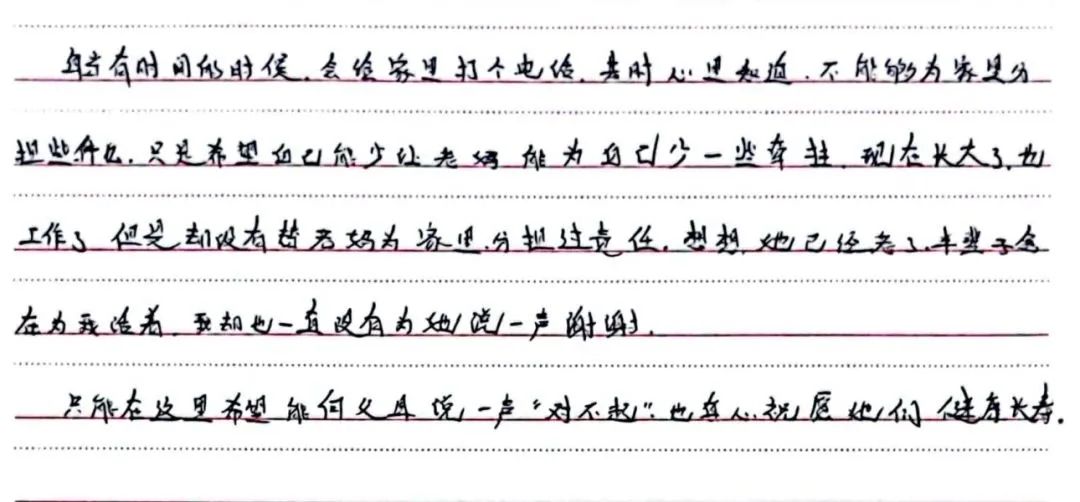 每当有时间的时候.会给家里打个电话.其时心里知道.不能够为家里分
担些什么.只是希望自己能少让老妈能为自己少一些牵挂.现在长大了.也
工作了 但是却没有替老妈为家里.分担过责任.想想她已经老了.半辈子会
在为我活着.我却也一直没有为她说一声谢谢.
只能在这里希望能向父母说一声"对不起".也真心祝愿她们健康长寿.